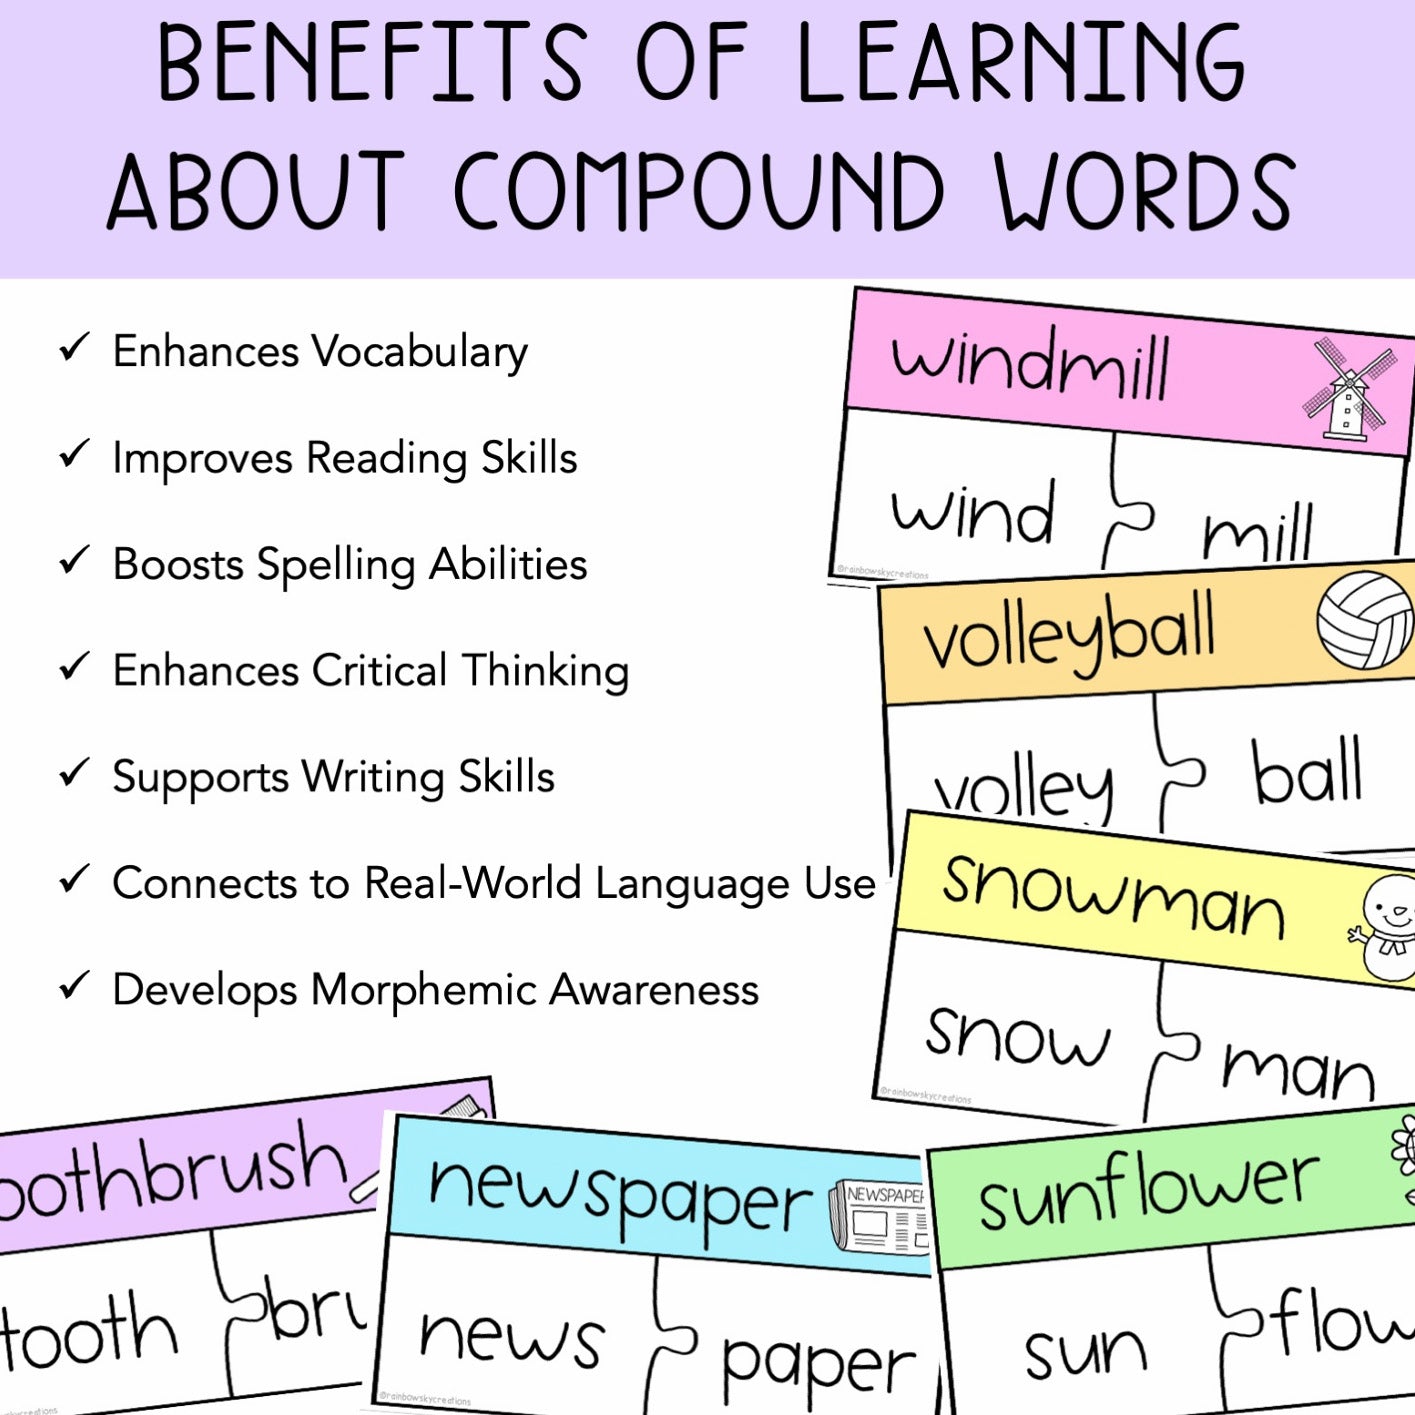 BENEFITS OF LEARNING
ABOUT COMPOUND WORDS
Enhances Vocabulary
Improves Reading Skills
Boosts Spelling Abilities
Enhances Critical Thinking
Supports Writing Skills
Connects to Real-World Language Use
Develops Morphemic Awareness
windmill
wind mill
@rainbowskycreations
volleyball
volley ball
snowman
snow man
@rainbowskycreations
oothbrush
tooth bru
newspaper
NEWSPAPER
news paper
@rainbowskycreations
sunflower
sun flow